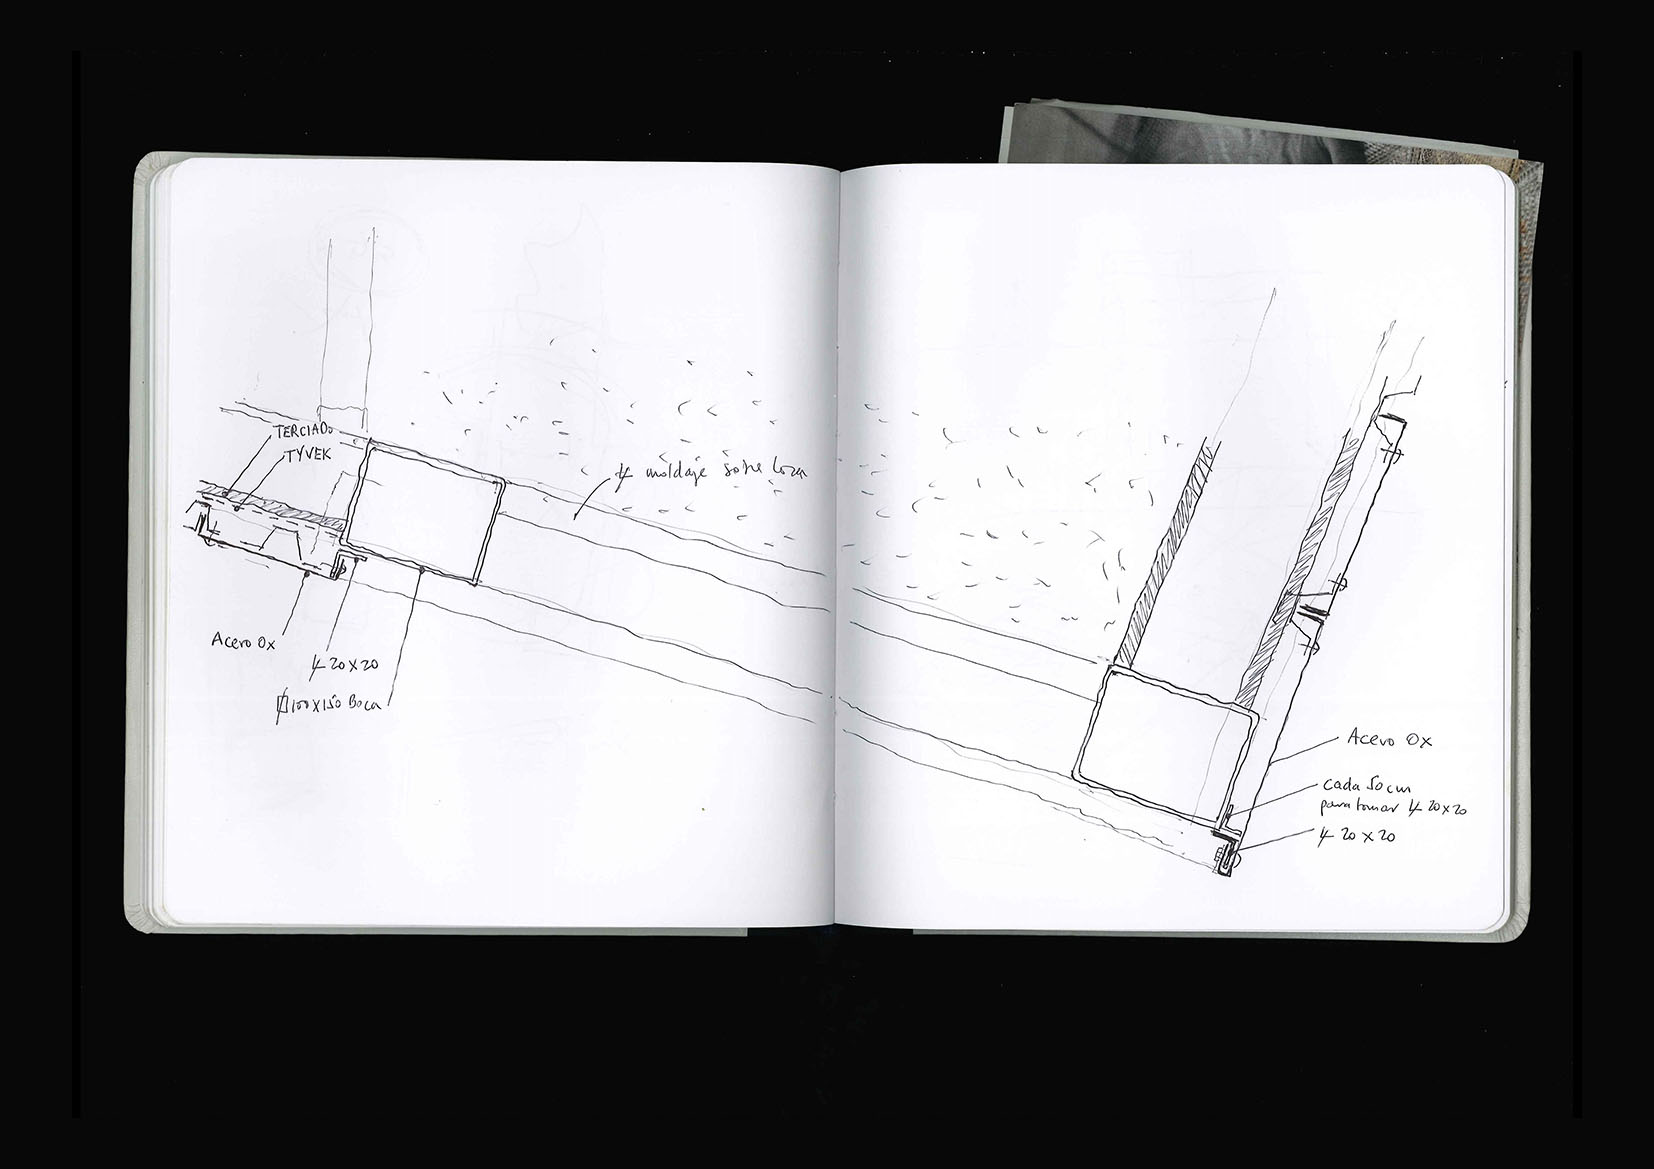 TERCIADO
TYVEK
moldaje sobre losa
Acero Ox
20x20
100x150 Boca
Acero Ox
cada 50cm
para tomar 20x20
20x20